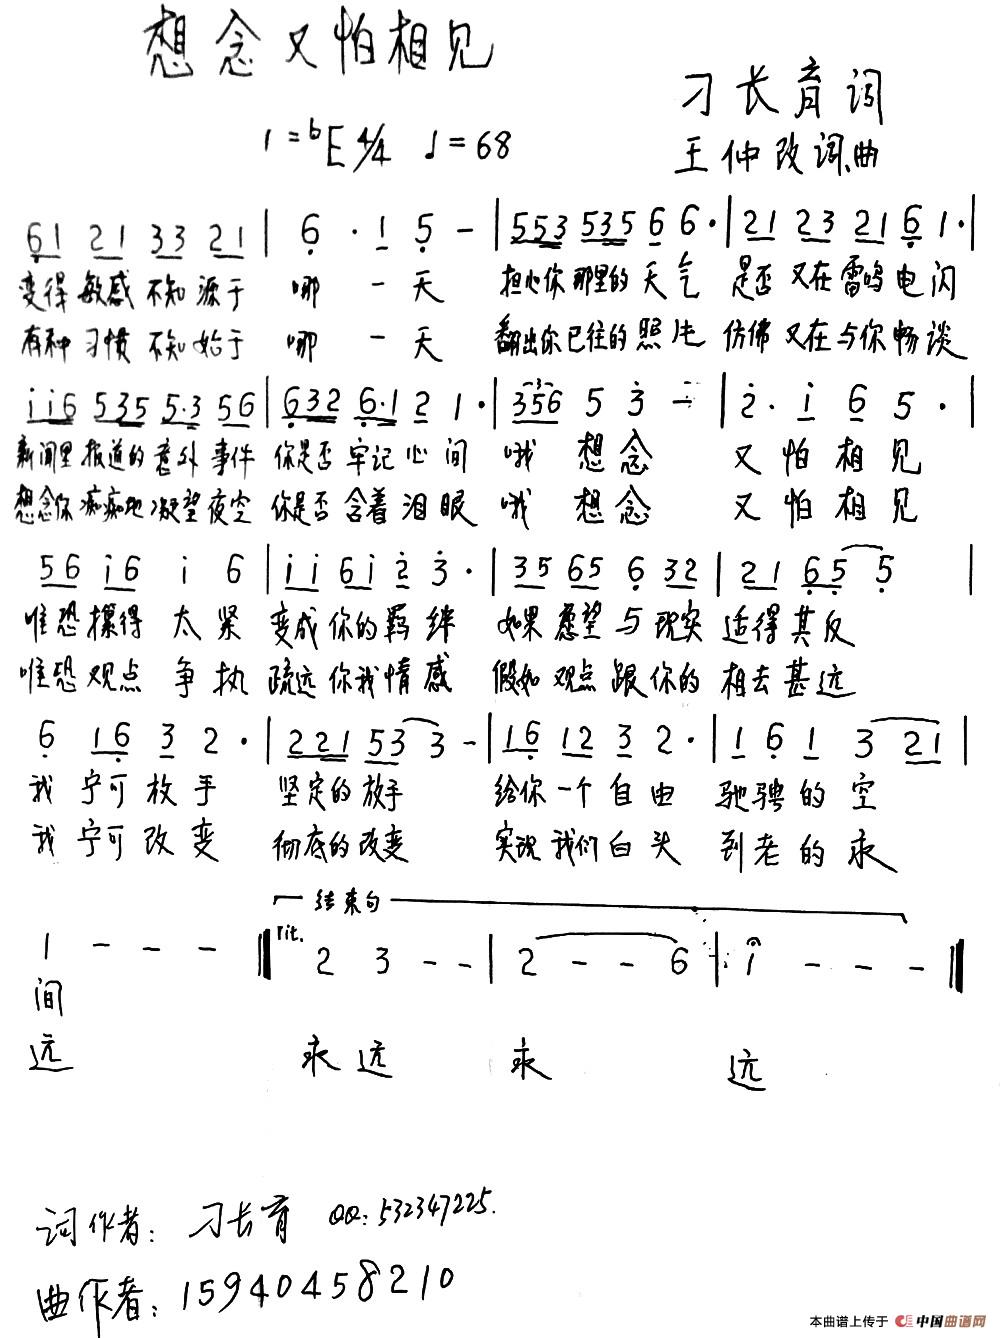 想念又怕相见
刁长育词
1=bE 4/4 ♩=68
王仲改词、曲
61 21 33 21 | 6 · 1 5 - | 553 535 6 6 · | 21 23 21 6 1 · |
变得 敏感 不知 源于 哪 一 天 担心你 那里的 天 气 是否 又在 雷鸣 电 闪
有种 习惯 不知 始于 哪 一 天 翻出你 已往的 照 片 仿佛 又在 与你 畅 谈
ii6 535 5·3 56 | 632 6·1 2 1 · | 356 5 3 - | 2 · i 6 5 · |
新闻里 报道的 意外 事件 你是否 牢记 心 间 哦 想 念 又 怕 相 见
想念你 痴痴地 凝望 夜空 你是否 含着 泪 眼 哦 想 念 又 怕 相 见
56 i6 i 6 | ii 6i 2 3 · | 35 65 6 32 | 21 65 5 |
唯恐 攥得 太 紧 变成 你的 羁 绊 如果 愿望 与 现实 适得 其反
唯恐 观点 争 执 疏远 你我 情 感 假如 观点 跟 你的 相去 甚远
6 16 3 2 · | 221 53 3 - | 16 12 3 2 · | 1 6 1 3 21 |
我 宁可 放 手 坚定的 放手 给你 一个 自 由 驰 骋 的 空
我 宁可 改 变 彻底的 改变 实现 我们 白 头 到 老 的 永
结束句
rit.
1 - - - 2 3 - - | 2 - - 6 | i - - -
间
远 永 远 永 远
词作者：刁长育 QQ:532347225.
曲作者：15940458210
本曲谱上传于 中国曲谱网